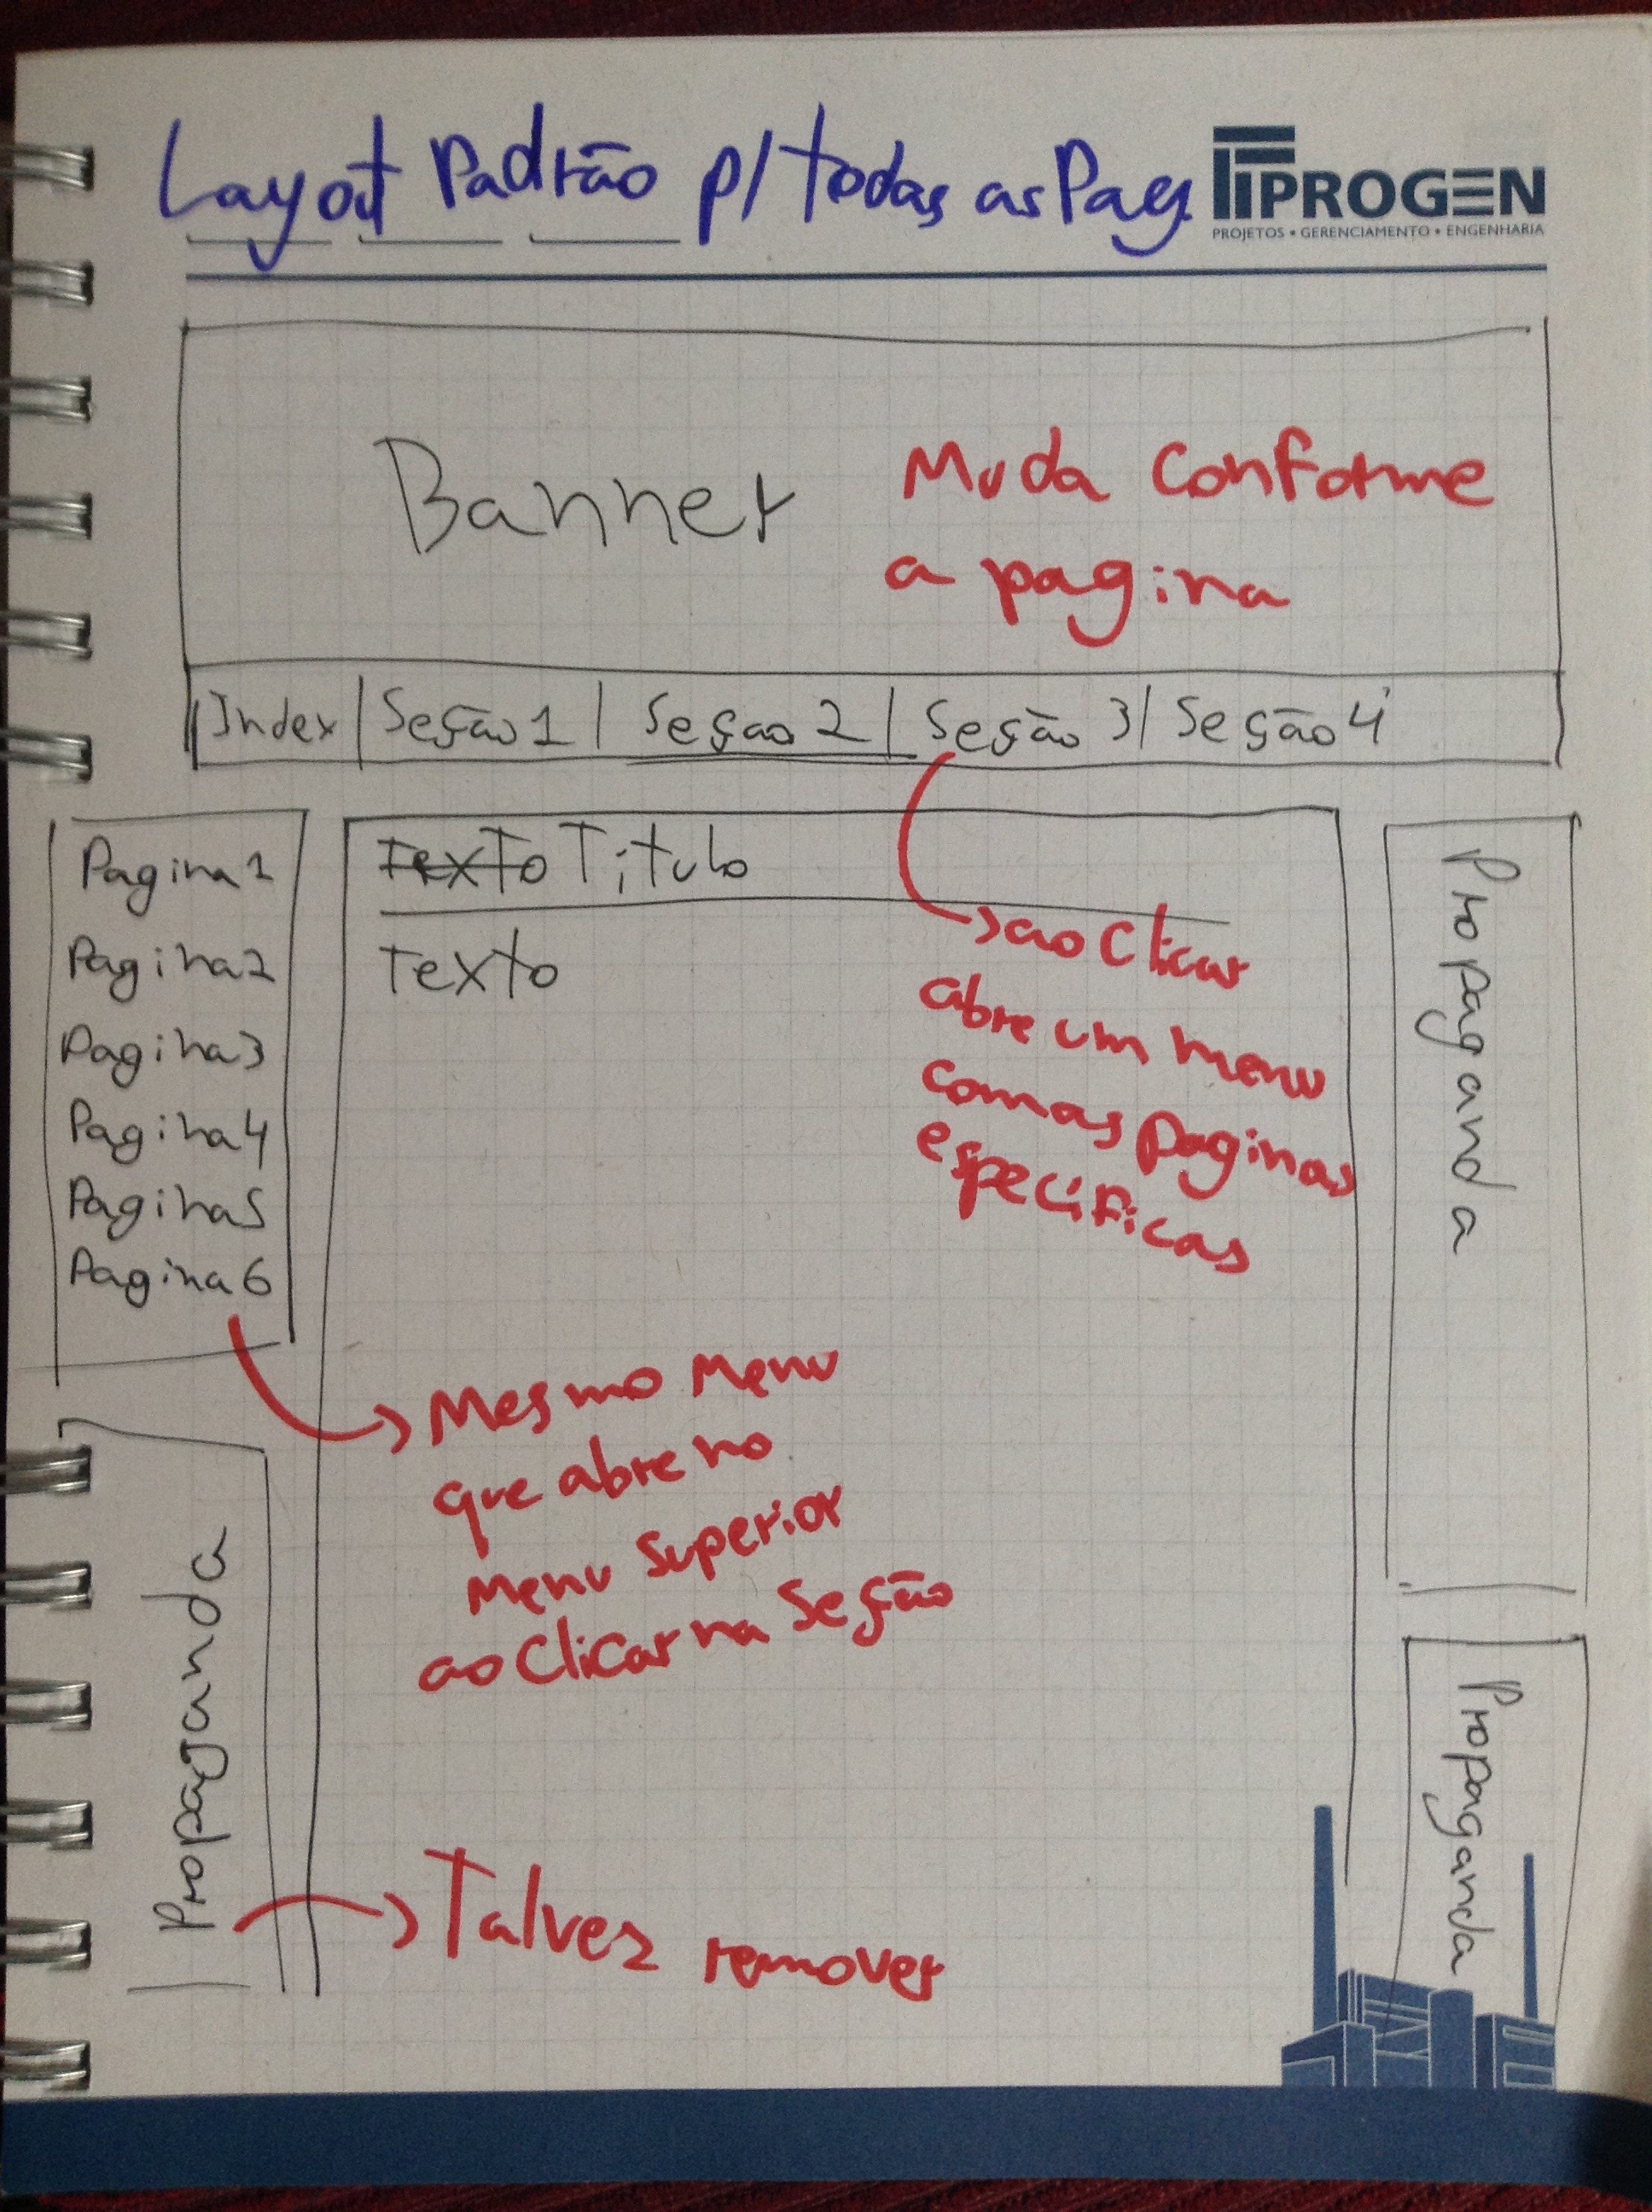 Layout Padrão p/ todas as Pag.
PROGEN
PROJETOS • GERENCIAMENTO • ENGENHARIA
Banner
Muda conforme
a pagina
Index | Seção 1 | Seçao 2 | Seção 3 | Seção 4
Pagina 1
Pagina 2
Pagina 3
Pagina 4
Pagina 5
Pagina 6
Texto Titulo
Texto
ao clicar
abre um menu
com as paginas
especificas
Mesmo menu
que abre no
menu superior
ao clicar na seção
Propaganda
Talvez remover
Propaganda
Propaganda